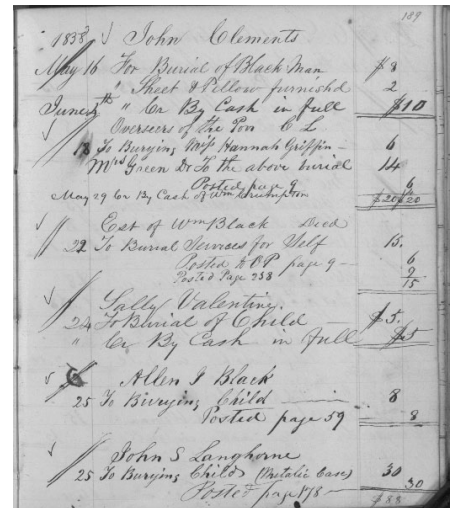 189
1838 John Clements
May 16 For Burial of Black Man $8
" Sheet & Pillow furnishd 2
June 5th " Cr By Cash in full $10
Overseers of the Poor C L
18 To Burying Mrs Hannah Griffin 6
Mrs Green Dr To the above burial 14
Posted page 9 6
May 29 Cr By Cash of Wm $20 $20
Est of Wm Black Died
22 To Burial Services for Self 15.
Posted to O P page 9 6
Posted Page 238 9
15
Sally Valentine
24 To Burial of Child $5.
" Cr By Cash in full $5
Allen J Black
25 To Burying Child 8
Posted page 59 8
John S Langhorne
25 To Burying Child (Metalic Case) 30
Posted page 178 30
$88